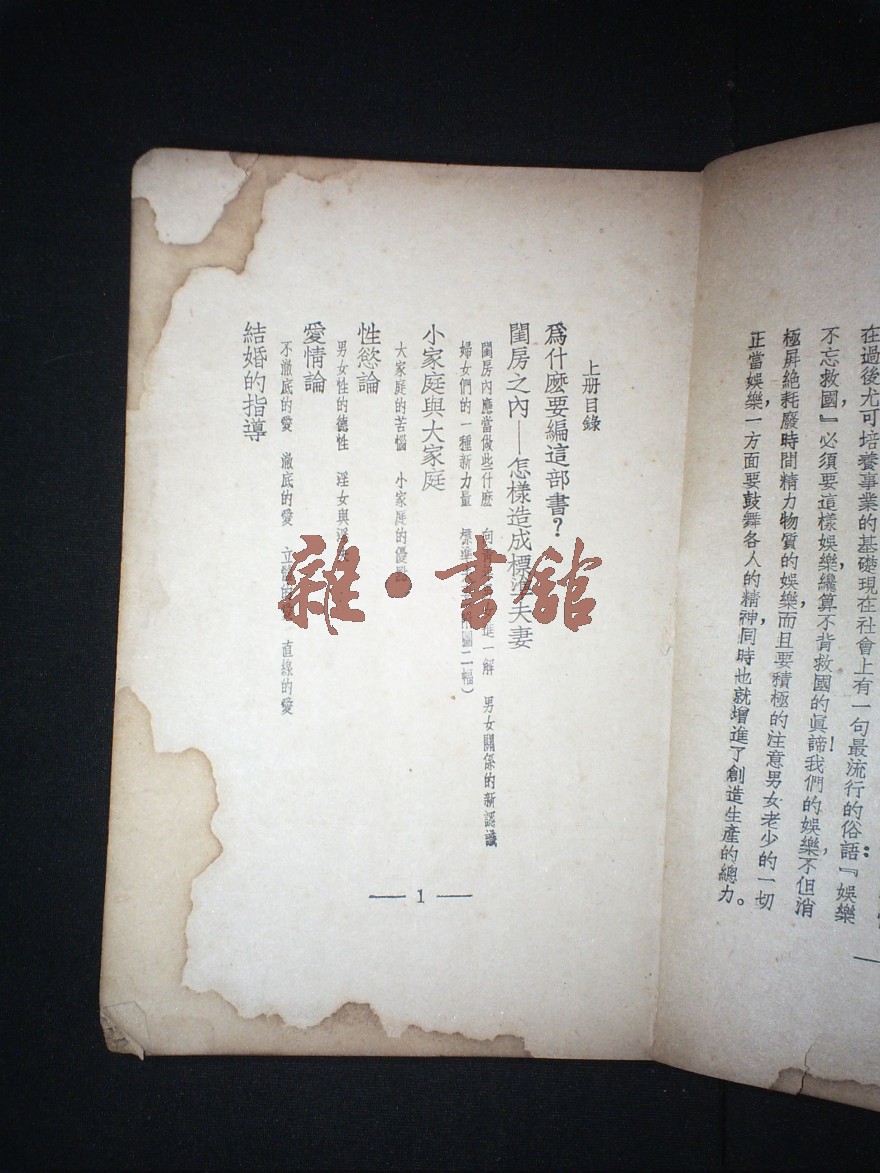 在過後尤可培養事業的基礎現在社會上有一句最流行的俗語：『娛樂
不忘救國』必須要這樣娛樂纔算不背救國的眞諦！我們的娛樂不但消
極屏絕耗廢時間精力物質的娛樂，而且要積極的注意男女老少的一切
正當娛樂，一方面要鼓舞各人的精神，同時也就增進了創造生產的總力。
上册目錄
爲什麽要編這部書？
閨房之內—怎樣造成標準夫妻
閨房內應當做些什麽 進一解 男女關係的新認識
婦女們的一種新力量 標準 圖二幅）
小家庭與大家庭
大家庭的苦惱 小家庭的優
性慾論
男女性的德性 淫女與淫
愛情論
不澈底的愛 澈底的愛 立 愛 直線的愛
結婚的指導
1
雜·書館